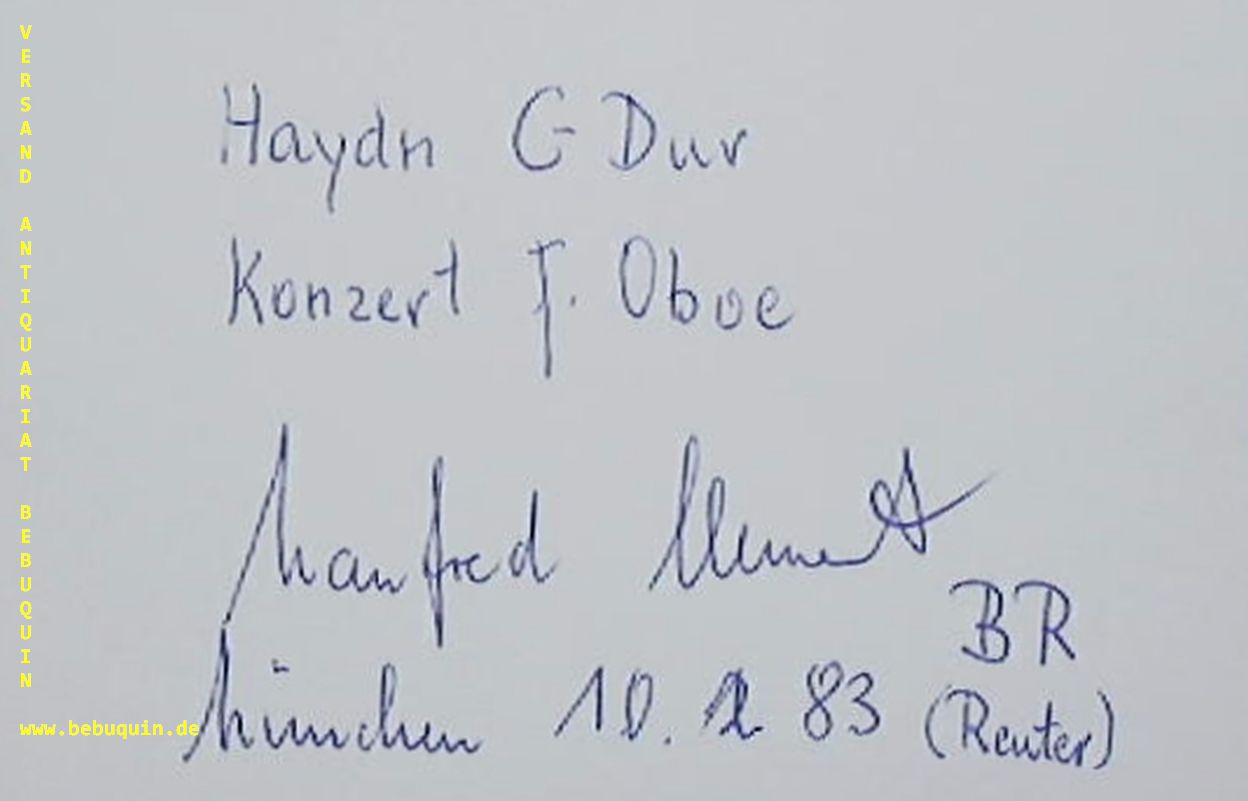 VERSAND ANTIQUARIAT BEBUQUIN
www.bebuquin.de
Haydn G Dur
Konzert f. Oboe
Manfred Clement
BR
München 10. 2 83 (Reuter)